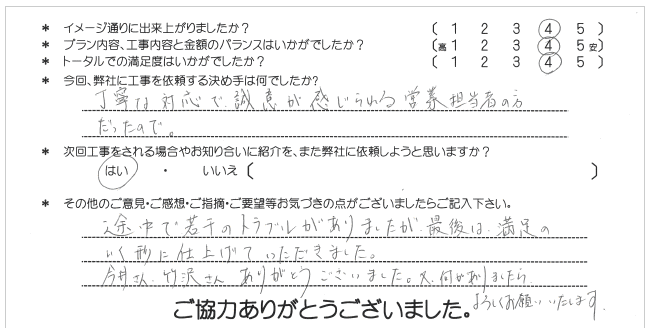 * イメージ通りに出来上がりましたか? ( 1 2 3 4 5 )
* プラン内容、工事内容と金額のバランスはいかがでしたか? (高 1 2 3 4 5 安)
* トータルでの満足度はいかがでしたか? ( 1 2 3 4 5 )
* 今回、弊社に工事を依頼する決め手は何でしたか?
丁寧な対応で、誠意が感じられる営業担当者の方
だったので。
* 次回工事をされる場合やお知り合いに紹介を、また弊社に依頼しようと思いますか?
はい ・ いいえ ( )
* その他のご意見・ご感想・ご指摘・ご要望等お気づきの点がございましたらご記入下さい。
途中で若干のトラブルがありましたが、最後は、満足の
いく形に仕上げていただきました。
今井さん、竹沢さん ありがとうございました。又、何かありましたら
よろしくお願いいたします。
ご協力ありがとうございました。